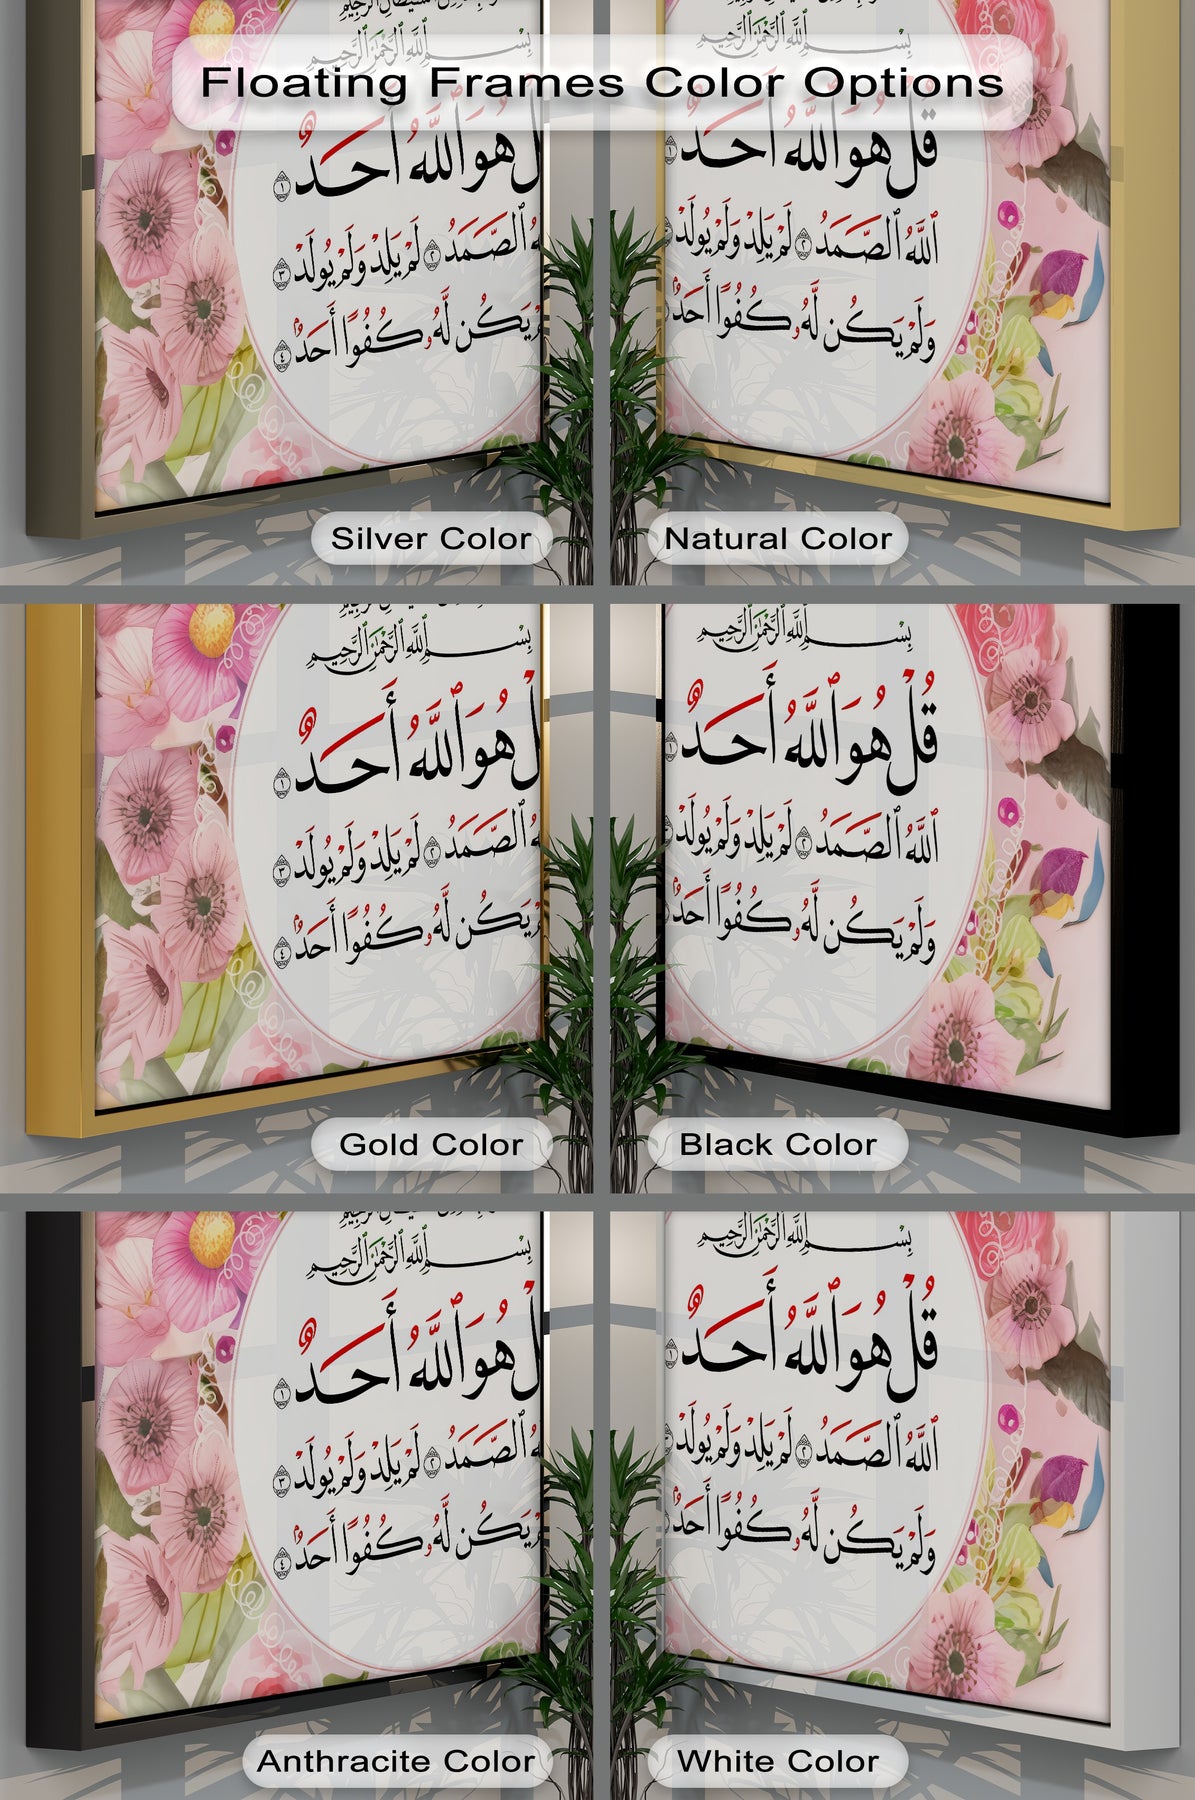 Floating Frames Color Options
بِسْمِ ٱللَّهِ ٱلرَّحْمَٰنِ ٱلرَّحِيمِ
هُوَ ٱللَّهُ أَحَدٌ ١
ٱلصَّمَدُ ٢ لَمْ يَلِدْ وَلَمْ يُولَدْ ٣
يَكُن لَّهُۥ كُفُوًا أَحَدٌۢ ٤
Silver Color
بِسْمِ ٱللَّهِ ٱلرَّحْمَٰنِ ٱلرَّحِيمِ
قُلْ هُوَ ٱللَّهُ أَحَدٌ ١
ٱللَّهُ ٱلصَّمَدُ ٢ لَمْ يَلِدْ وَلَمْ يُولَدْ
وَلَمْ يَكُن لَّهُۥ كُفُوًا أَحَدٌۢ
Natural Color
بِسْمِ ٱللَّهِ ٱلرَّحْمَٰنِ ٱلرَّحِيمِ
هُوَ ٱللَّهُ أَحَدٌ ١
ٱلصَّمَدُ ٢ لَمْ يَلِدْ وَلَمْ يُولَدْ ٣
يَكُن لَّهُۥ كُفُوًا أَحَدٌۢ ٤
Gold Color
بِسْمِ ٱللَّهِ ٱلرَّحْمَٰنِ ٱلرَّحِيمِ
قُلْ هُوَ ٱللَّهُ أَحَدٌ ١
ٱللَّهُ ٱلصَّمَدُ ٢ لَمْ يَلِدْ وَلَمْ يُولَدْ
وَلَمْ يَكُن لَّهُۥ كُفُوًا أَحَدٌۢ
Black Color
بِسْمِ ٱللَّهِ ٱلرَّحْمَٰنِ ٱلرَّحِيمِ
هُوَ ٱللَّهُ أَحَدٌ ١
ٱلصَّمَدُ ٢ لَمْ يَلِدْ وَلَمْ يُولَدْ ٣
يَكُن لَّهُۥ كُفُوًا أَحَدٌۢ ٤
Anthracite Color
بِسْمِ ٱللَّهِ ٱلرَّحْمَٰنِ ٱلرَّحِيمِ
قُلْ هُوَ ٱللَّهُ أَحَدٌ ١
ٱللَّهُ ٱلصَّمَدُ ٢ لَمْ يَلِدْ وَلَمْ يُولَدْ
وَلَمْ يَكُن لَّهُۥ كُفُوًا أَحَدٌۢ
White Color